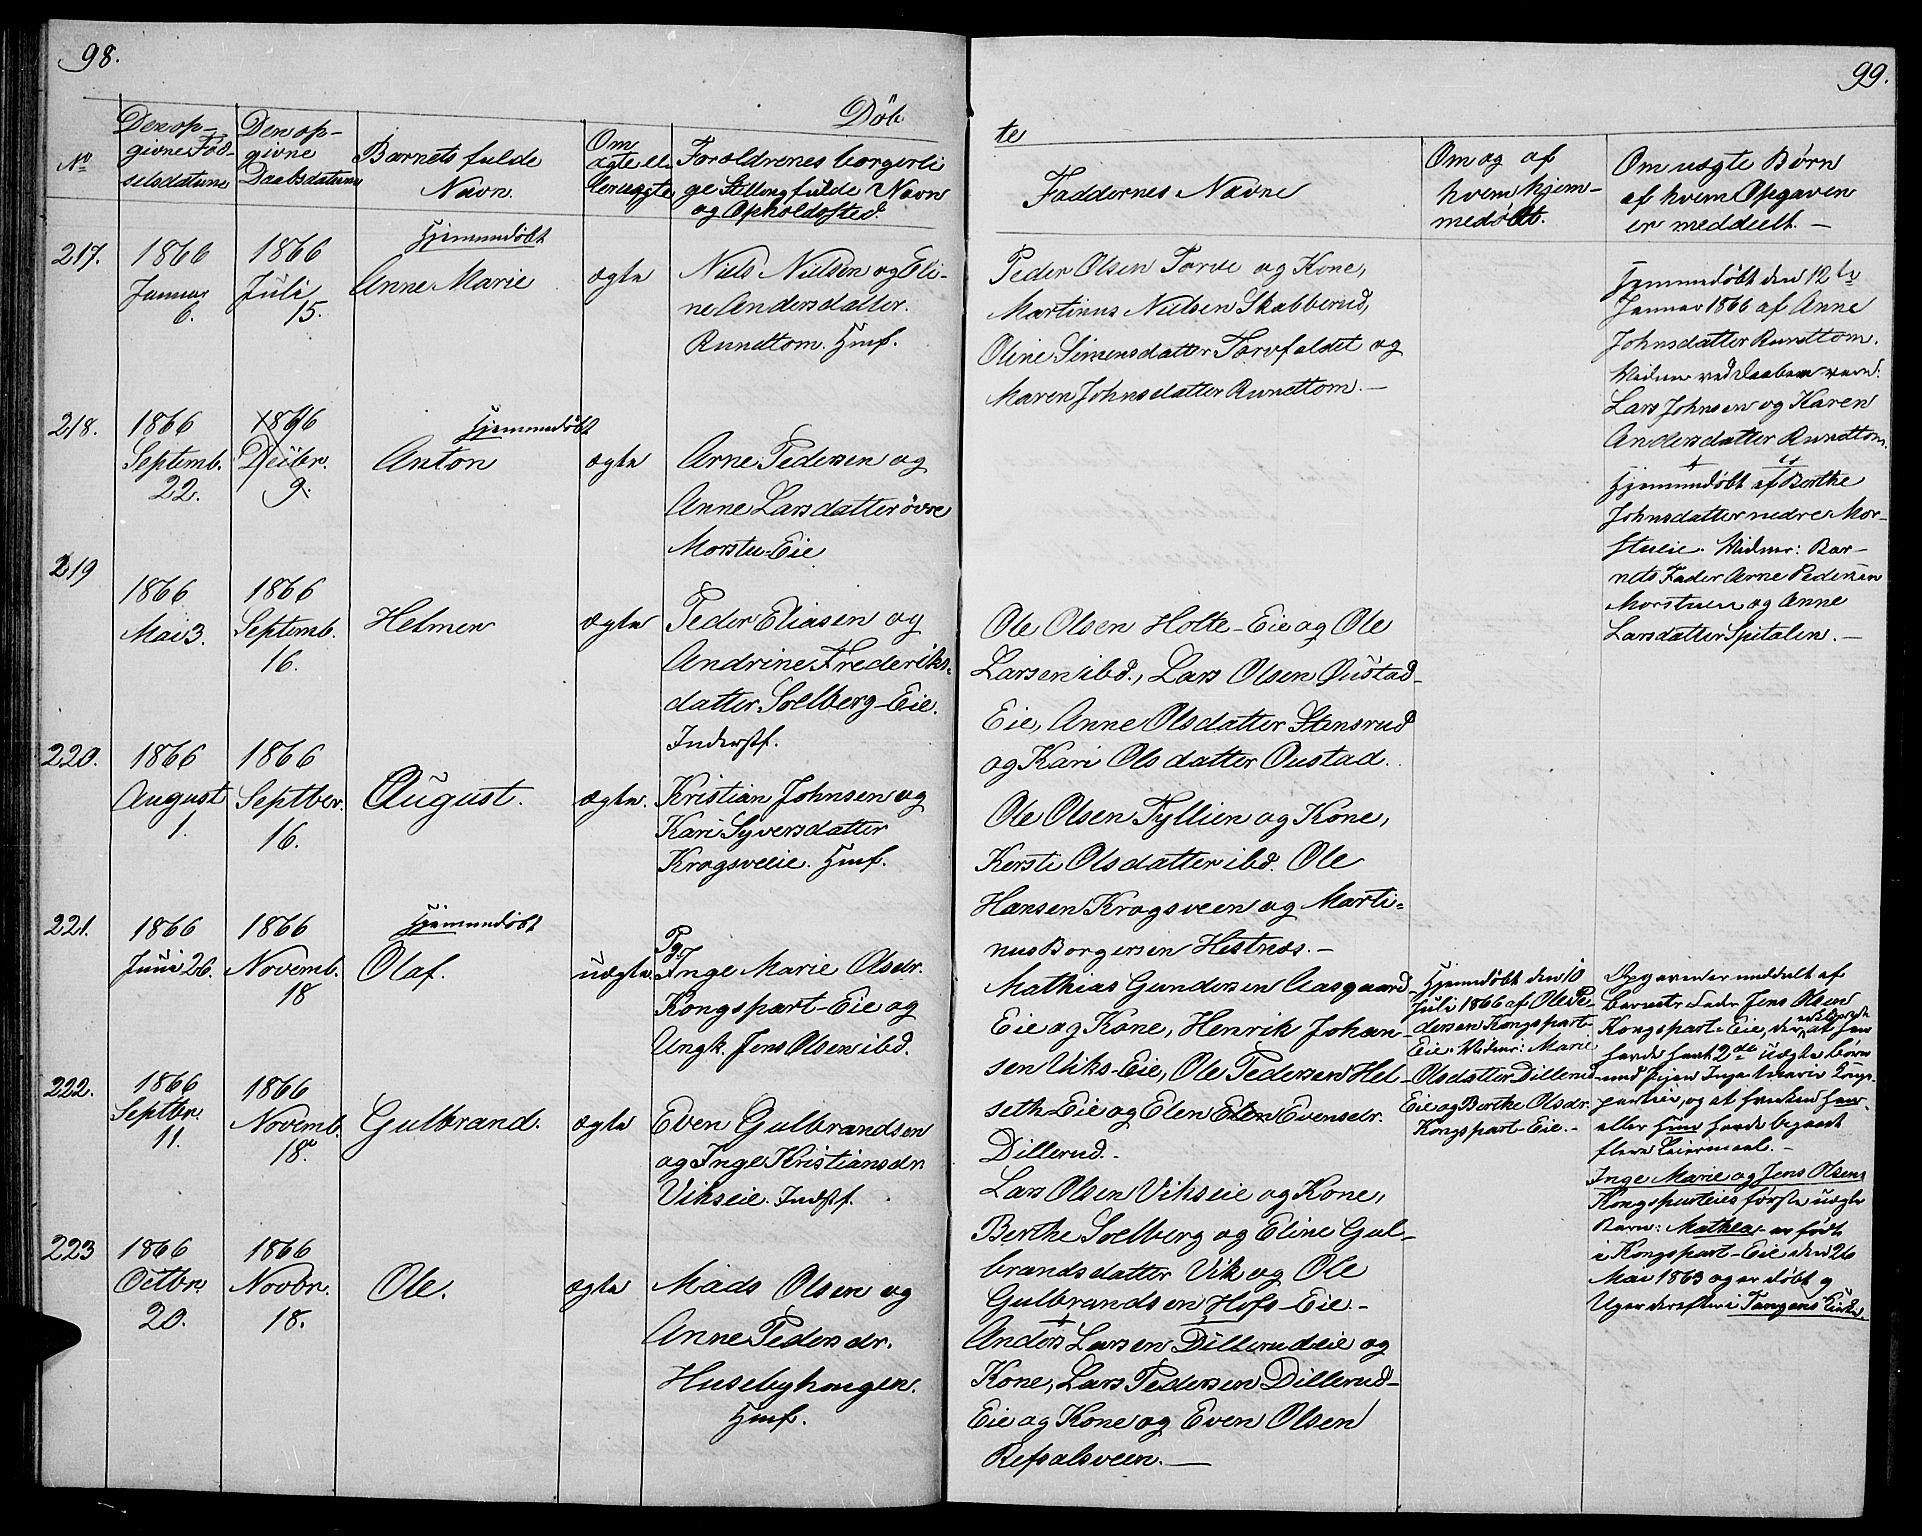 98.
Döb
No
Den op-
givne Föd-
selsdatum
Den op-
givne
Daabsdatum
Barnets fulde
Navn.
Om
ægte ell.
uægte
Foræoldrenes borgerli
ge Stilling fulde Navn
og Opholdssted.
217.
1866
Januar
6.
1866
Juli
15.
Hjemmedöbt
Anne Marie
ægte
Niels Nielsen og Eli-
ne Andersdatter.
Rundtom. Hmf.
218.
1866
Septemb.
22.
1866
Decbr.
9.
Hjemmedöbt
Anton
ægte
Arne Pedersen og
Anne Larsdatter övre
Morstu-Eie
219
1866
Mai 3.
1866
Septemb.
16.
Helmer
ægte
Peder Eliasen og
Andrine Frederiks-
datter Solberg-Eie.
Inderstf.
220.
1866
August
1.
1866
Septber.
16.
August.
ægte.
Kristian Johnsen og
Kari Syversdatter
Krogsveeie. Hmf.
221.
1866
Juni 26.
1866
Novemb.
18
Hjemmedöbt
Olaf.
uægte
Pg. Inge Marie Olsdr.
Kongspart-Eie og
Ungk. Jens Olsen ibd.
222.
1866
Septbr.
11.
1866
Novemb.
18.
Gulbrand.
ægte
Even Gulbrandsen
og Inge Kristiansdr.
Vikseie. Indstf.
223
1866
Octbr.
20.
1866
Novbr.
18.
Ole.
ægte
Mads Olsen og
Anne Pedersdr.
Husebyhougen.
Hmf.
99.
te
Faddernes Navne
Om og af
hvem hjem-
medöbt.
Om uægte Börn
af hvem Opgaven
er meddeelt. -
Peder Olsen Torve og Kone,
Martinus Nielsen Skabberud,
Oline Simensdatter Torvfaldet og
Maren Johnsdatter Rundtom. -
Hjemmedöbt den 12te
Januar 1866 af Anne
Johnsdatter Rundtom.
Vidner ved Daaben vare:
Lars Johnsen og Karen
Andersdatter Rundtom.
Hjemmedöbt af Berthe
Johnsdatter nedre Mor-
stueie. Vidner: Bar-
nets Fader Arne Pedersen
Morstuen og Anne
Larsdatter Spitalen. -
Ole Olsen Holte-Eie og Ole
Larsen ibd., Lars Olsen Oustad-
Eie, Anne Olsdatter Stensrud
og Kari Olsdatter Oustad.
Ole Olsen Tyllien og Kone,
Kersti Olsdatter ibd. Ole
Hansen Krogsveen og Marti-
nus Borgersen Hestnæs. -
Mathias Gundersen Aasgaard-
Eie og Kone, Henrik Johan-
sen Viks-Eie, Ole Pedersen Hel-
seth-Eie og Elen Elen Evensdr.
Dillerud.
Hjemmedöbt den 10
Juli 1866 af Ole Pe-
dersen Kongspart-
Eie. Vidner: Marie
Olsdatter Dillerud-
Eie og Berthe Olsdr.
Kongspart-Eie. -
Opgaven er meddelt af
barnets Fader Jens Olsen
Kongspart-Eie, der at han
havde havt 2de uægte börn
med pigen Inge Marie Kongs-
parteie, og at hverken han
eller hun havde begaaet
flere Leiermaal. -
Inge Marie og Jens Olsens
Kongsparteies förste uægte
Barn: Mathea er födt
i Kongspart-Eie den 26
Mai 1863 og er döbt 9
Uger derefter i Tangens Kirke.
Lars Olsen Vikseie og Kone,
Berthe Solberg og Eline Gul-
brandsdatter Vik og Ole
Gulbrandsen Hofs-Eie. -
Anders Larsen Dillerudeie og
Kone, Lars Pedersen Dillerud-
Eie og Kone og Even Olsen
Refsalsveen. -